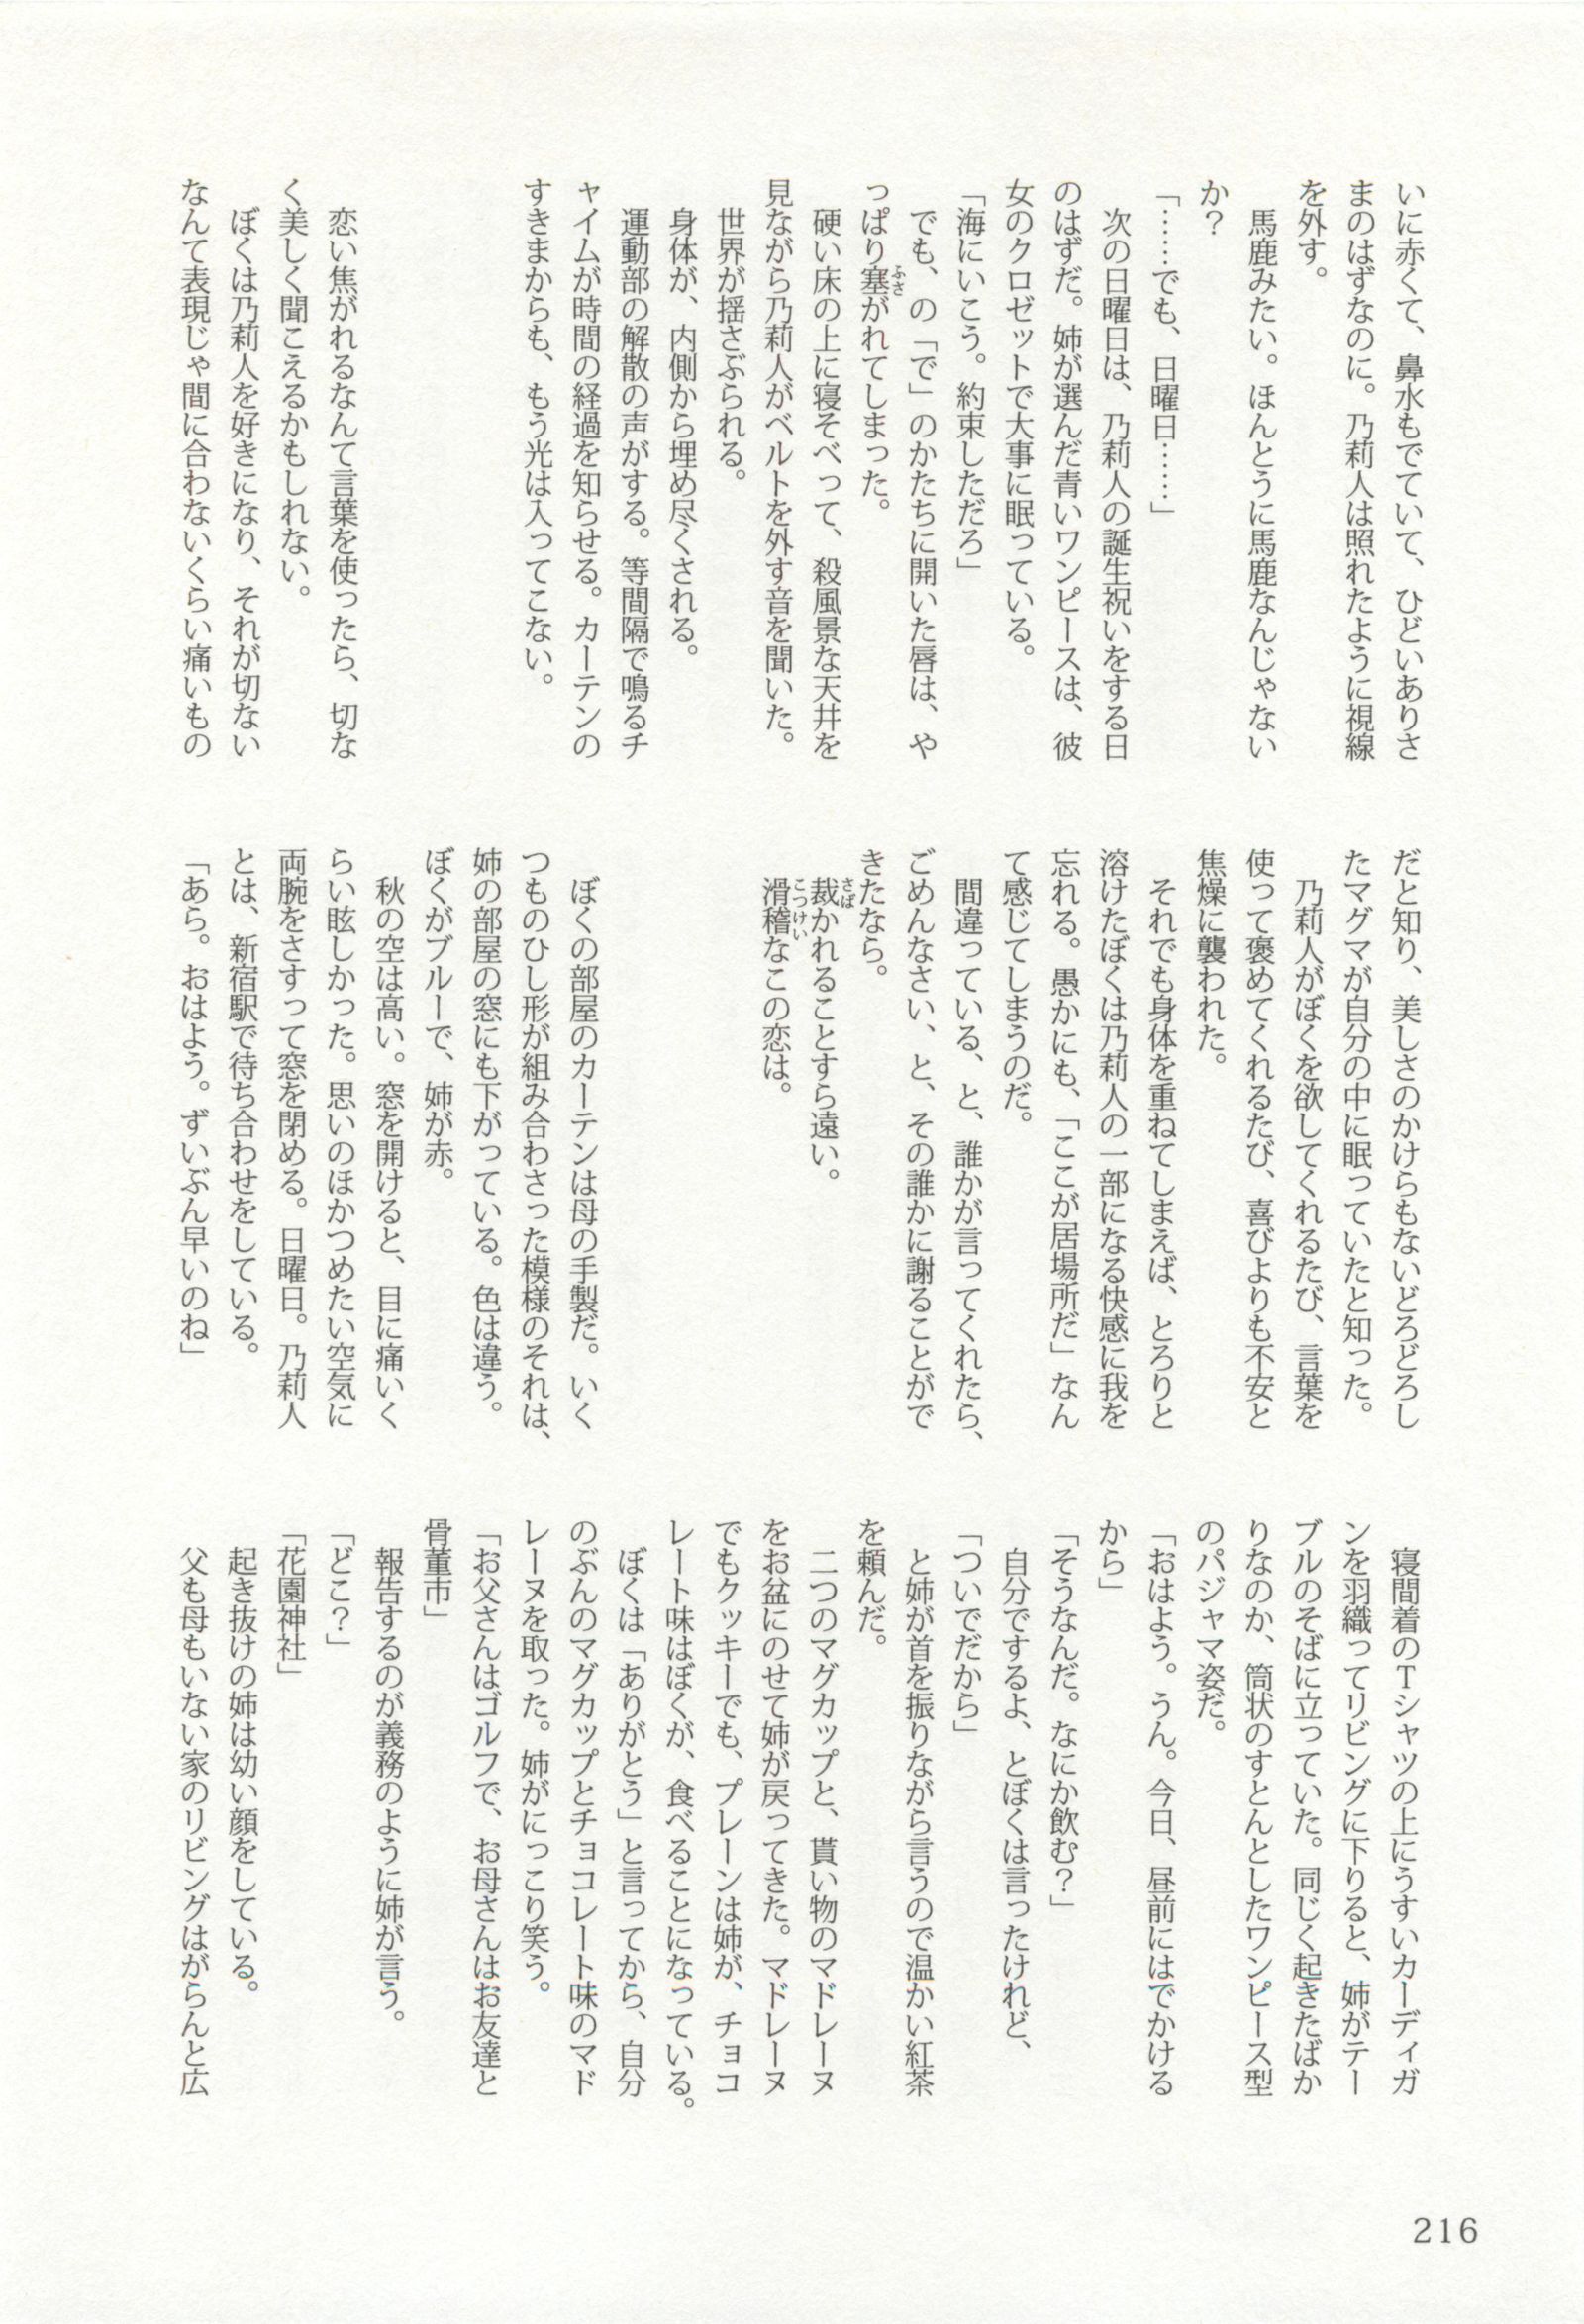 いに赤くて、鼻水もでていて、ひどいありさ
まのはずなのに。乃莉人は照れたように視線
を外す。
　馬鹿みたい。ほんとうに馬鹿なんじゃない
か？
「……でも、日曜日……」
　次の日曜日は、乃莉人の誕生祝いをする日
のはずだ。姉が選んだ青いワンピースは、彼
女のクロゼットで大事に眠っている。
「海にいこう。約束しただろ」
　でも、の「で」のかたちに開いた唇は、や
っぱり塞ふさがれてしまった。
　硬い床の上に寝そべって、殺風景な天井を
見ながら乃莉人がベルトを外す音を聞いた。
　世界が揺さぶられる。
　身体が、内側から埋め尽くされる。
　運動部の解散の声がする。等間隔で鳴るチ
ャイムが時間の経過を知らせる。カーテンの
すきまからも、もう光は入ってこない。
　恋い焦がれるなんて言葉を使ったら、切な
く美しく聞こえるかもしれない。
　ぼくは乃莉人を好きになり、それが切ない
なんて表現じゃ間に合わないくらい痛いもの
だと知り、美しさのかけらもないどろどろし
たマグマが自分の中に眠っていたと知った。
　乃莉人がぼくを欲してくれるたび、言葉を
使って褒めてくれるたび、喜びよりも不安と
焦燥に襲われた。
　それでも身体を重ねてしまえば、とろりと
溶けたぼくは乃莉人の一部になる快感に我を
忘れる。愚かにも、「ここが居場所だ」なん
て感じてしまうのだ。
　間違っている、と、誰かが言ってくれたら、
ごめんなさい、と、その誰かに謝ることがで
きたなら。
　裁さばかれることすら遠い。
　滑稽こっけいなこの恋は。
　ぼくの部屋のカーテンは母の手製だ。いく
つものひし形が組み合わさった模様のそれは、
姉の部屋の窓にも下がっている。色は違う。
ぼくがブルーで、姉が赤。
　秋の空は高い。窓を開けると、目に痛いく
らい眩しかった。思いのほかつめたい空気に
両腕をさすって窓を閉める。日曜日。乃莉人
とは、新宿駅で待ち合わせをしている。
「あら。おはよう。ずいぶん早いのね」
　寝間着のTシャツの上にうすいカーディガ
ンを羽織ってリビングに下りると、姉がテー
ブルのそばに立っていた。同じく起きたばか
りなのか、筒状のすとんとしたワンピース型
のパジャマ姿だ。
「おはよう。うん。今日、昼前にはでかける
から」
「そうなんだ。なにか飲む？」
　自分でするよ、とぼくは言ったけれど、
「ついでだから」
　と姉が首を振りながら言うので温かい紅茶
を頼んだ。
　二つのマグカップと、貰い物のマドレーヌ
をお盆にのせて姉が戻ってきた。マドレーヌ
でもクッキーでも、プレーンは姉が、チョコ
レート味はぼくが、食べることになっている。
　ぼくは「ありがとう」と言ってから、自分
のぶんのマグカップとチョコレート味のマド
レーヌを取った。姉がにっこり笑う。
「お父さんはゴルフで、お母さんはお友達と
骨董市」
　報告するのが義務のように姉が言う。
「どこ？」
「花園神社」
　起き抜けの姉は幼い顔をしている。
　父も母もいない家のリビングはがらんと広
216